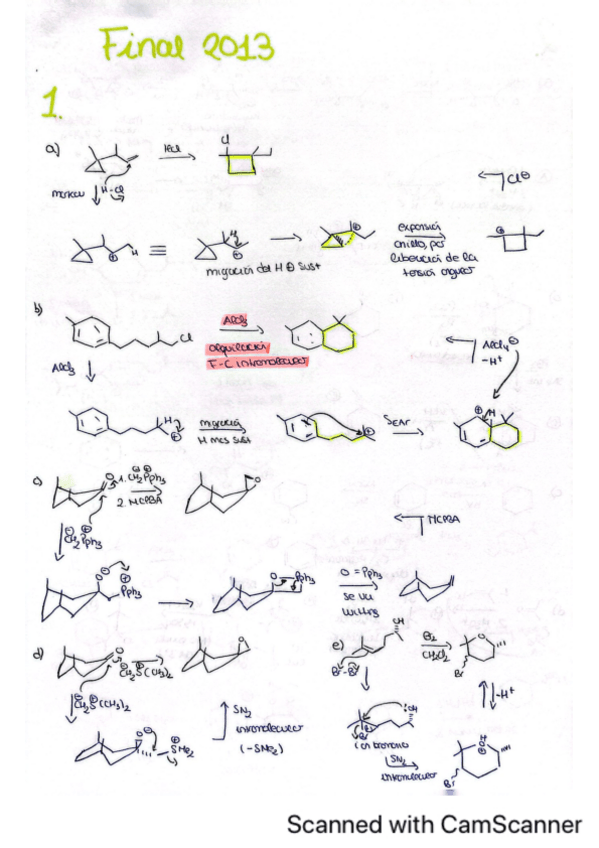 Final 2013
1.
a)
HCl
Cl
H-Cl
Cl⊖
H
H
migración del H ⊕ sust
expansión
anillo, por
liberación de la
tensión angular
b)
Cl
AlCl3
alquilación
F-C intramolecular
AlCl3
AlCl4⊖
-H+
H
migración
H mes sust
SEAr
H
c)
O
1. CH2PPh3
2. MCPBA
O
CH2PPh3
MCPBA
O⊖
PPh3
O-PPh3
O=PPh3
se va
Wittig
d)
O
CH2S(CH3)2
O
CH2S(CH3)2
SN2
intramolecular
(-SMe2)
O⊖
SMe2
e)
OH
Br-Br
Br2
CH2Cl2
O
Br
-H+
OH
Br
ion bromonio
SN2
intramolecular
H
O
Br
Scanned with CamScanner